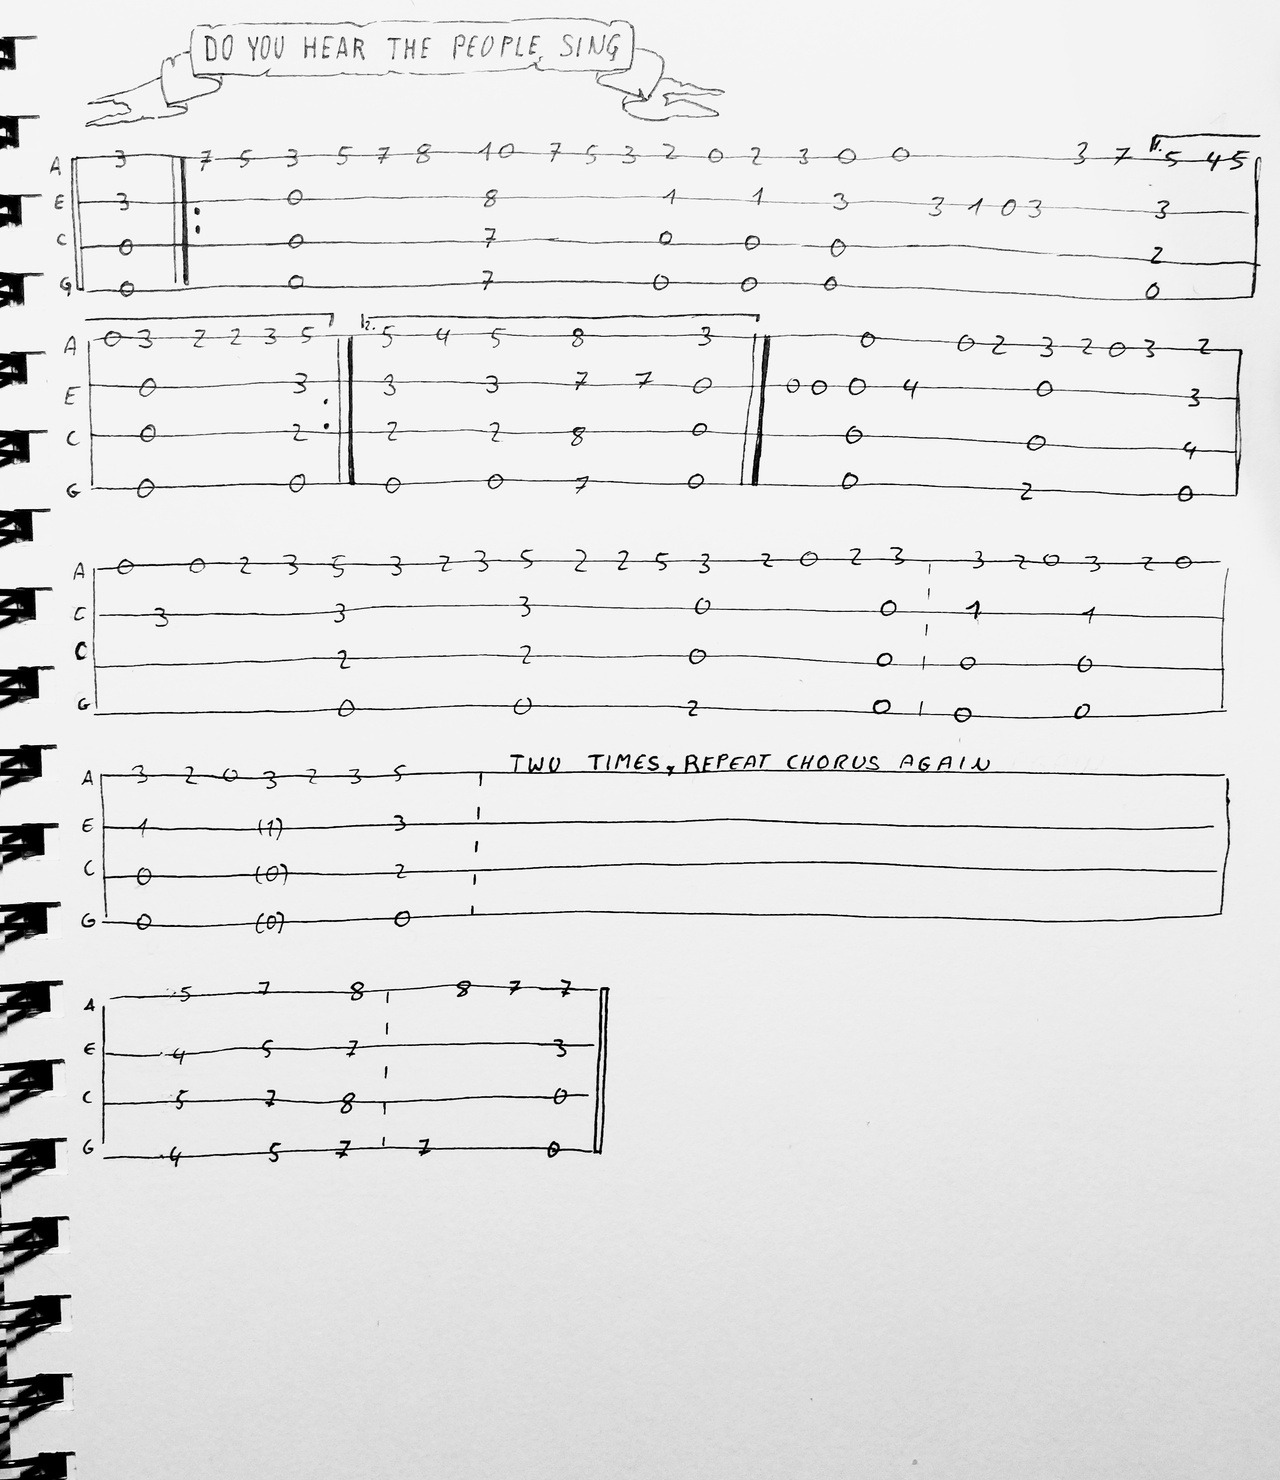 DO YOU HEAR THE PEOPLE SING
A 3 7 5 3 5 7 8 10 7 5 3 2 0 2 3 0 0 3 7 1. 5 4 5
E 3 0 8 1 1 3 3 1 0 3 3
C 0 0 7 0 0 0 2
G 0 0 7 0 0 0 0
A 0 3 2 2 3 5 2. 5 4 5 8 3 0 0 2 3 2 0 3 2
E 0 3 3 3 7 7 0 0 0 0 4 0 3
C 0 2 2 2 8 0 0 0 4
G 0 0 0 0 7 0 0 2 0
A 0 0 2 3 5 3 2 3 5 2 2 5 3 2 0 2 3 3 2 0 3 2 0
C 3 3 3 0 0 1 1
C 2 2 0 0 0 0
G 0 0 2 0 0 0
A 3 2 0 3 2 3 5 TWO TIMES, REPEAT CHORUS AGAIN
E 1 (1) 3
C 0 (0) 2
G 0 (0) 0
A 5 7 8 8 7 7
E 4 5 7 3
C 5 7 8 0
G 4 5 7 7 0